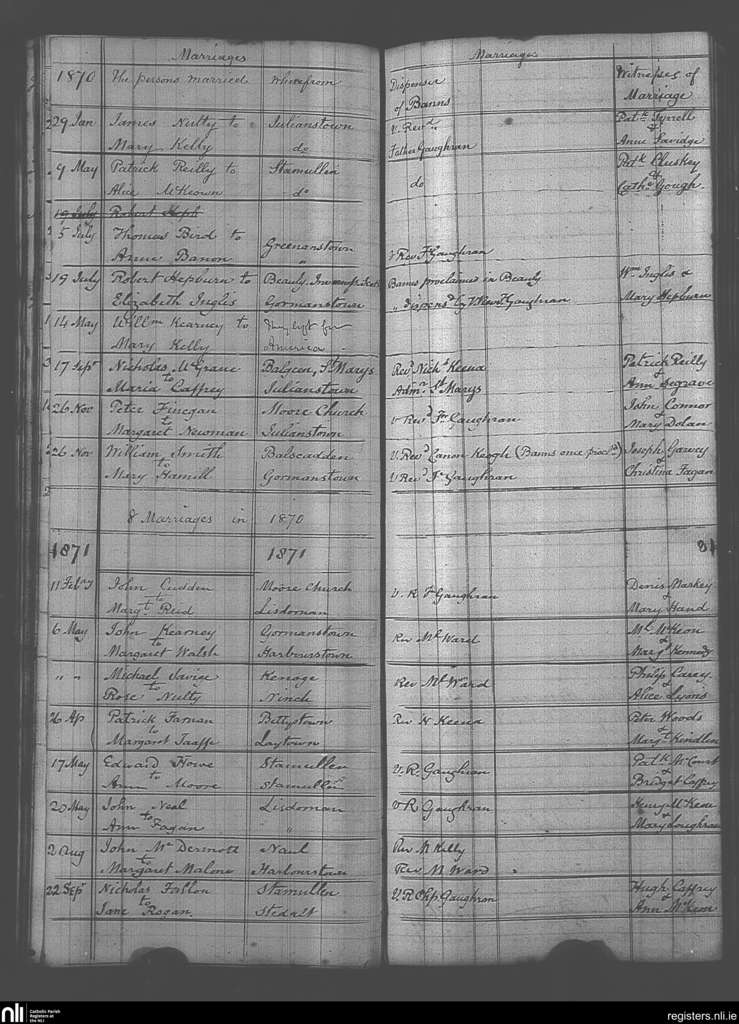 Marriages
Marriages
1870 The persons married Wherefrom Dispenser of Banns Witnesses of Marriage
29 Jan James Nulty to Julianstown V. Revd. Patk. Tyrrell
&
Mary Kelly do Father Gaughran Anne
9 May Patrick Reilly to Stamullen Patk Cluskey
&
Alice McKeown do do Cathe. Gough.
19 July Robert Heph
5 July Thomas Bird to Greenanstown
Anne Banon " V Rev F Gaughran
19 July Robert Hepburn to Beauly, Banns proclaimed in Beauly Wm Inglis &
Elizabeth Inglis Gormanstown " dispensd. by V Revd. F Gaughran Mary Hepburn
14 May Willm Kearney to They left for
Mary Kelly America
17 Sept Nicholas McGrane Balgeen, St Marys Revd Nichs Keena Patrick Reilly
to &
Maria Caffrey Julianstown Admr. St Marys Ann Segrave
26 Nov Peter Finegan Moore Church V Revd Fr Gaughran John Connor
to &
Margaret Newman Julianstown Mary Dolan
26 Nov William Smith Balscadden V. Revd Canon Keogh (Banns once procld) Joseph Garvey
to &
Mary Hamill Gormanstown V Revd Fr Gaughran Christina Fagan
8 Marriages in 1870
1871 1871 81
11 Feby John Cudden Moore Church V. R F Gaughran Denis Markey
to &
Margt. Reid Lisdornan Mary Hand
6 May John Kearney Gormanstown Rev Ml Ward Ml McKeon
to &
Margaret Walsh Harbourstown Margt Kennedy
" " Michael Kenoge Rev Ml Ward Philip Carey
to &
Rose Nulty Ninch Alice Lyons
26 Ap Patrick Farnan Bettystown Rev N Keena Peter Woods
to &
Margaret Taaffe Laytown Margt Kindlen
17 May Edward Howe Stamullen V. R. Gaughran Patk McCourt
to &
Ann Moore Stamullen Bridget Caffrey
20 May John Neal Lisdornan V R Gaughran Henry McKeon
to &
Ann Fagan " Mary Loughran
2 Aug John Mc Dermott Naul Rev N Kelly
to
Margaret Malone Harbourstown Rev M Ward
22 Sept Nicholas Fallon Stamullen V. R Chp. Gaughran Hugh Caffrey
to &
Jane Rogan Stedalt Ann McKeon
nli Catholic Parish
Registers at
the NLI
registers.nli.ie